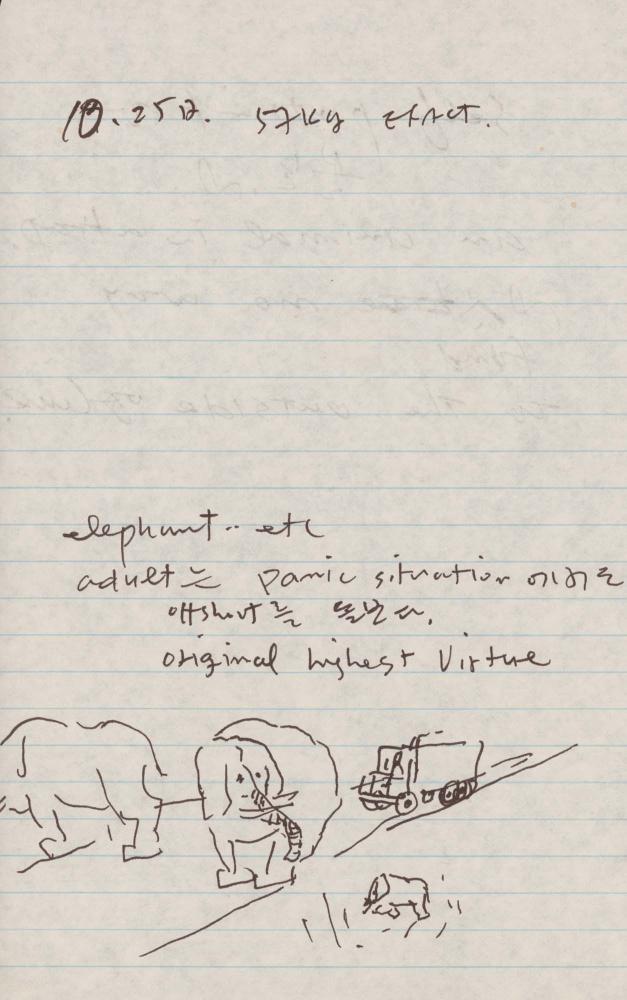 10.25일. 57kg exact.
elephant.. etc
adult는 panic situation에서도
offshoot를 돌본다.
original highest virtue